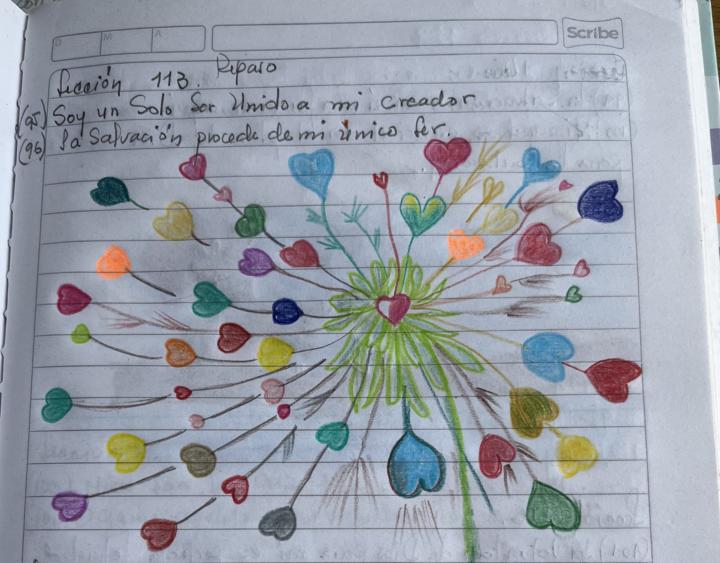 D M A Scribe
Lección 113. Repaso
(95) Soy un Solo Ser Unido a mi Creador
(96) la Salvación procede de mi único Ser.